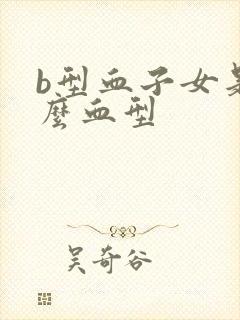 b型血子女是
麽血型
吴奇谷